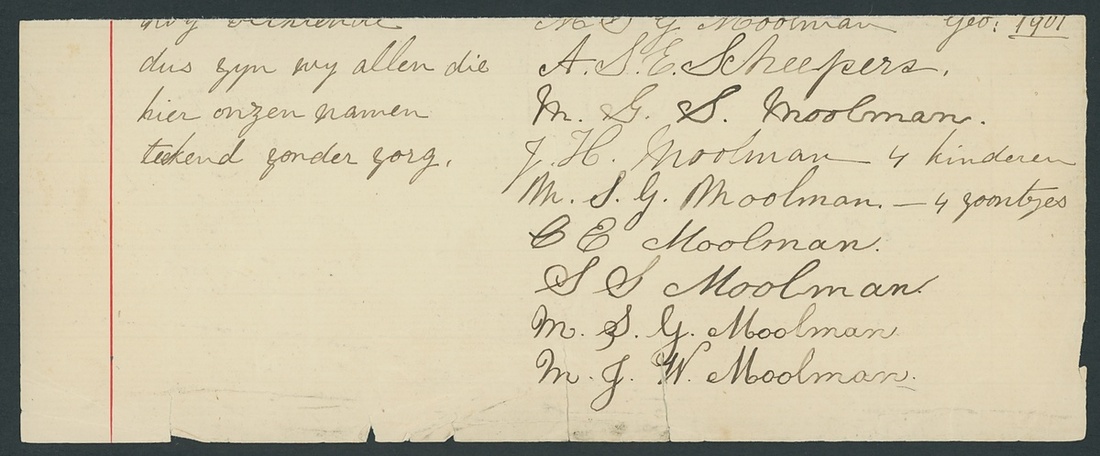 M S G Moolman geo: 1901
dus zyn wy allen die
hier onzen namen
teekend zonder zorg.
A. S. E. Scheepers.
M. G. S. Moolman.
J. H. Moolman — 4 kinderen
M. S. G. Moolman. — 4 zoontjes
C E Moolman.
S S Moolman.
M. S. G. Moolman.
M. J. W. Moolman.